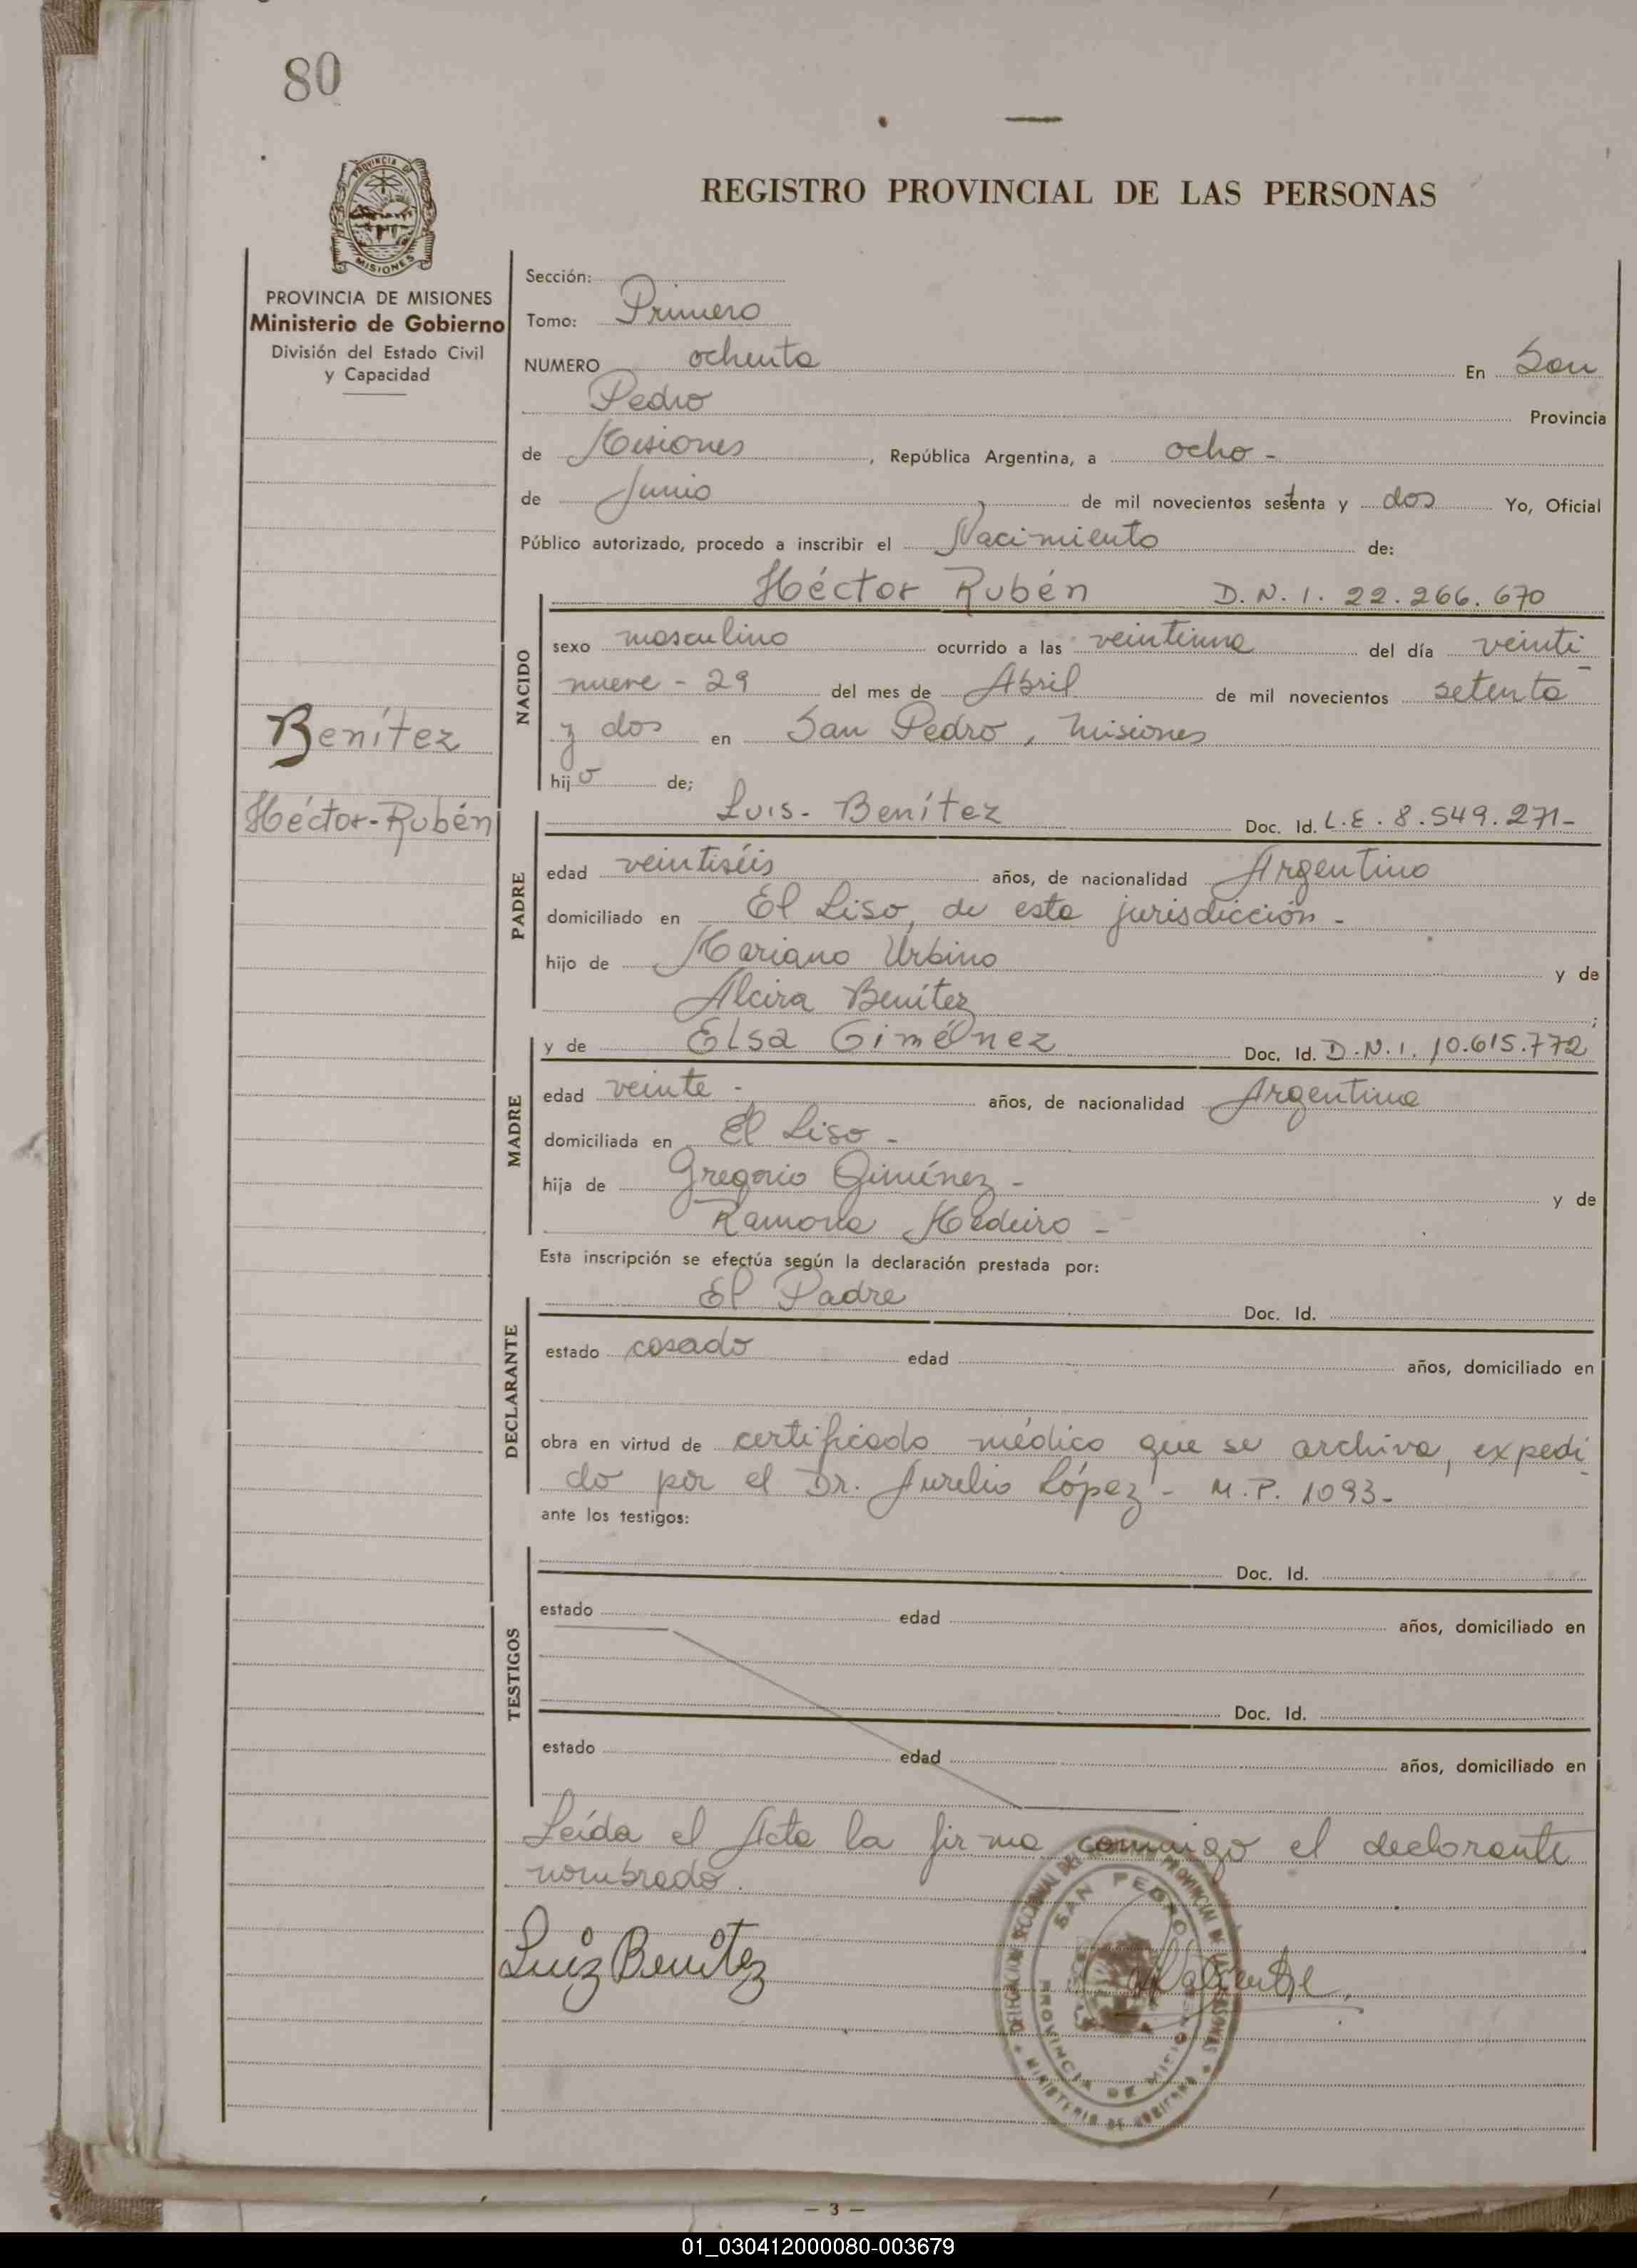 80
REGISTRO PROVINCIAL DE LAS PERSONAS
PROVINCIA DE
MISIONES
PROVINCIA DE MISIONES
Ministerio de Gobierno
División del Estado Civil
y Capacidad
Benítez
Héctor-Rubén
Sección:
Tomo: Primero
NUMERO ochenta En San
Pedro Provincia
de Misiones, República Argentina, a ocho -
de Junio de mil novecientos setenta y dos Yo, Oficial
Público autorizado, procedo a inscribir el Nacimiento de:
NACIDO
Héctor Rubén D.N.I. 22.266.670
sexo masculino ocurrido a las veintiuna del día veinti-
nueve - 29 del mes de Abril de mil novecientos setenta
y dos en San Pedro, Misiones
hijo de;
PADRE
Luis - Benítez Doc. Id. L.E. 8.549.271-
edad veintiséis años, de nacionalidad Argentino
domiciliado en El Liso, de esta jurisdicción -
hijo de Mariano Urbino y de
Alcira Benítez;
MADRE
y de Elsa Giménez Doc. Id. D.N.I. 10.615.772
edad veinte - años, de nacionalidad Argentina
domiciliada en El Liso -
hija de Gregorio Giménez - y de
Ramona Medeiro -
Esta inscripción se efectúa según la declaración prestada por:
DECLARANTE
El Padre Doc. Id.
estado casado edad años, domiciliado en
obra en virtud de certificado médico que se archiva, expedi-
do por el Dr. Aurelio López - M.P. 1093-
ante los testigos:
TESTIGOS
Doc. Id.
estado edad años, domiciliado en
Doc. Id.
estado edad años, domiciliado en
Leída el Acta la firma conmigo el declarante
nombrado.
Luiz Benitez
SAN PEDRO
PROVINCIA DE MISIONES
MINISTERIO DE GOBIERNO
- 3 -
01_030412000080-003679